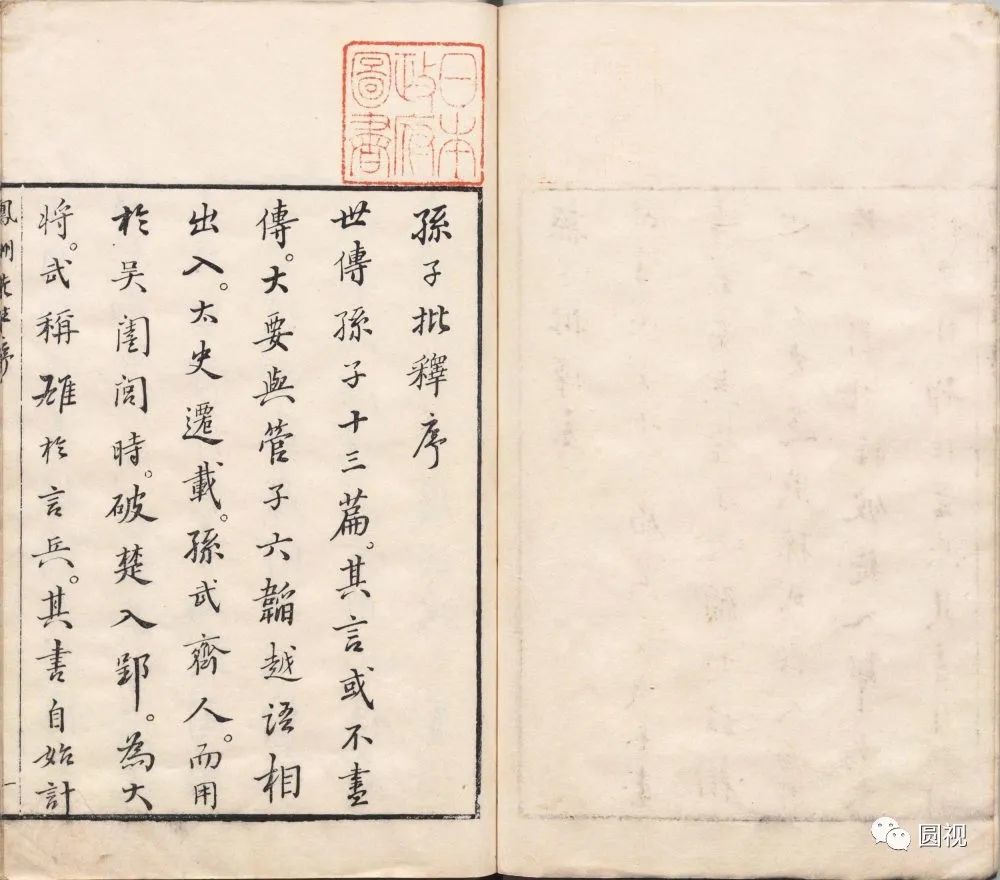 日本
政府
圖書
孫子批釋序
世傳孫子十三篇。其言或不盡
傳。大要與管子六韜越語相
出入。太史遷載。孫武齊人。而用
於吴闔閭時。破楚入郢。為大
將。武稱雄於言兵。其書自始計
鳳州
一
圆视